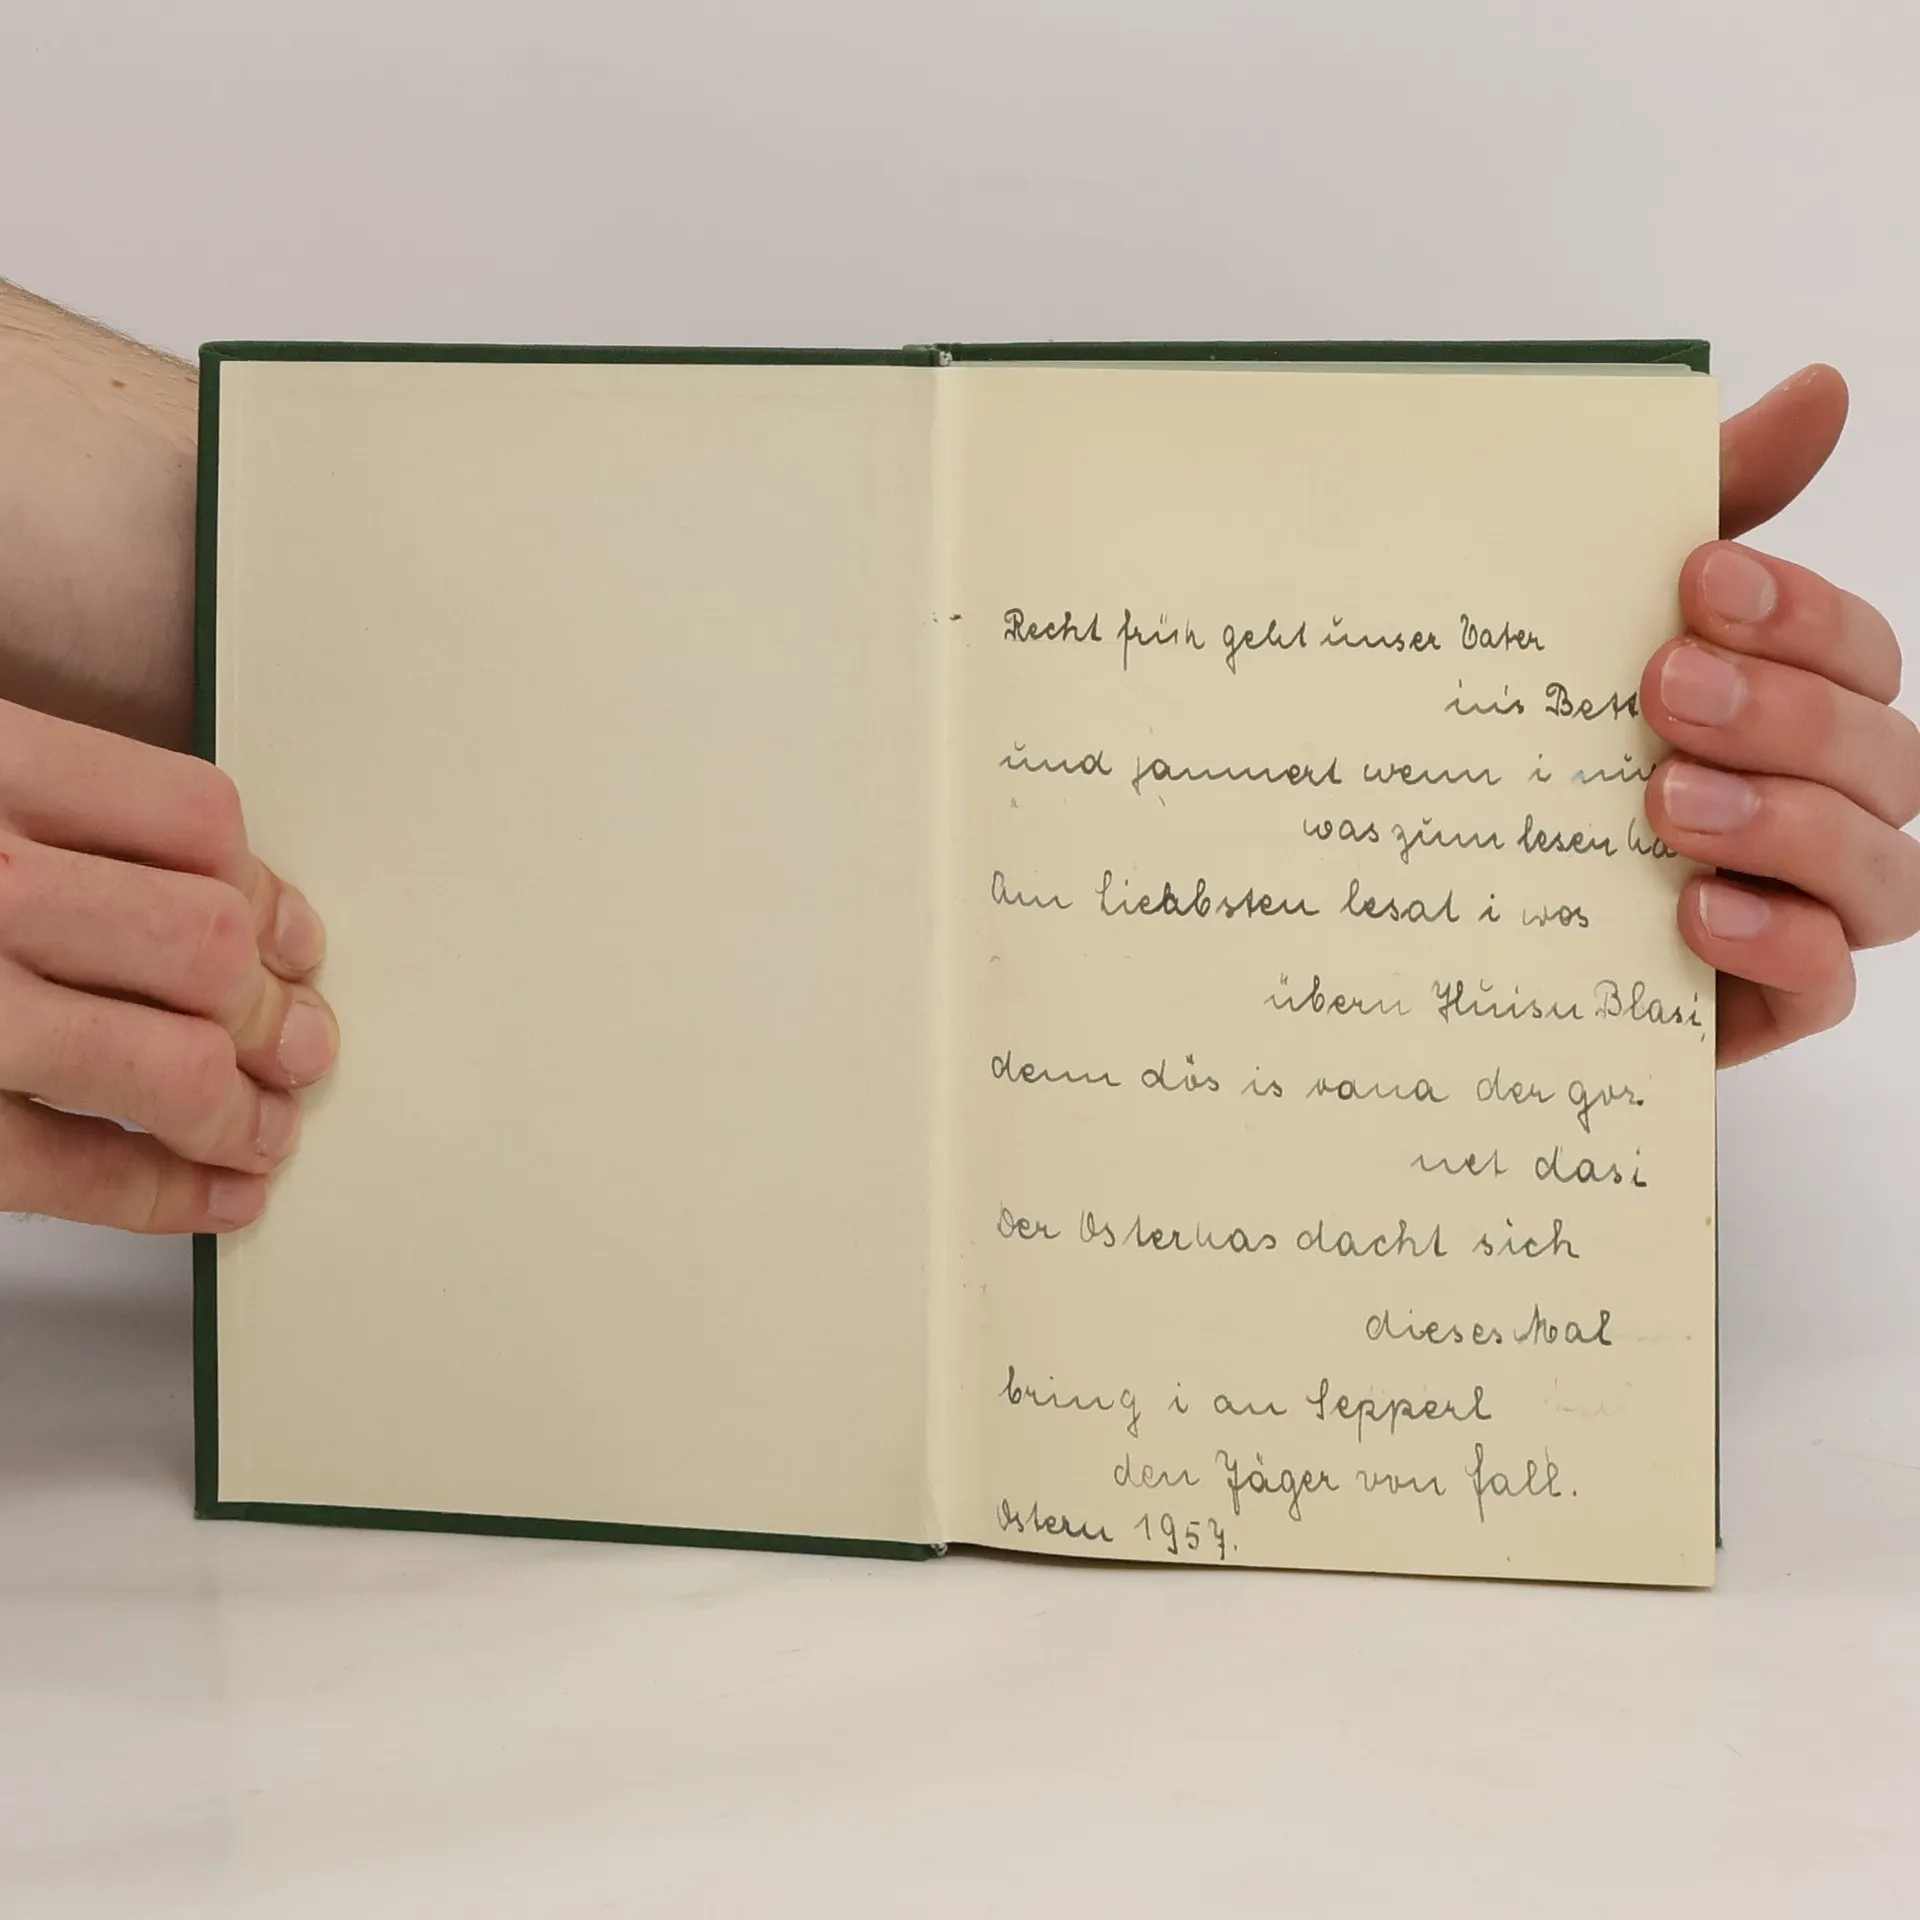 Recht früh geht unser Vater
ins Bett
und jammert wenn i
was zum lesen
Am Liebsten lesat i wos
übern Huisn Blasi,
denn dös is oana der gor
net dasi
Der Osterhas dacht sich
dieses Mal
bring i an Sepperl
den Jäger von Fall.
Ostern 1957.